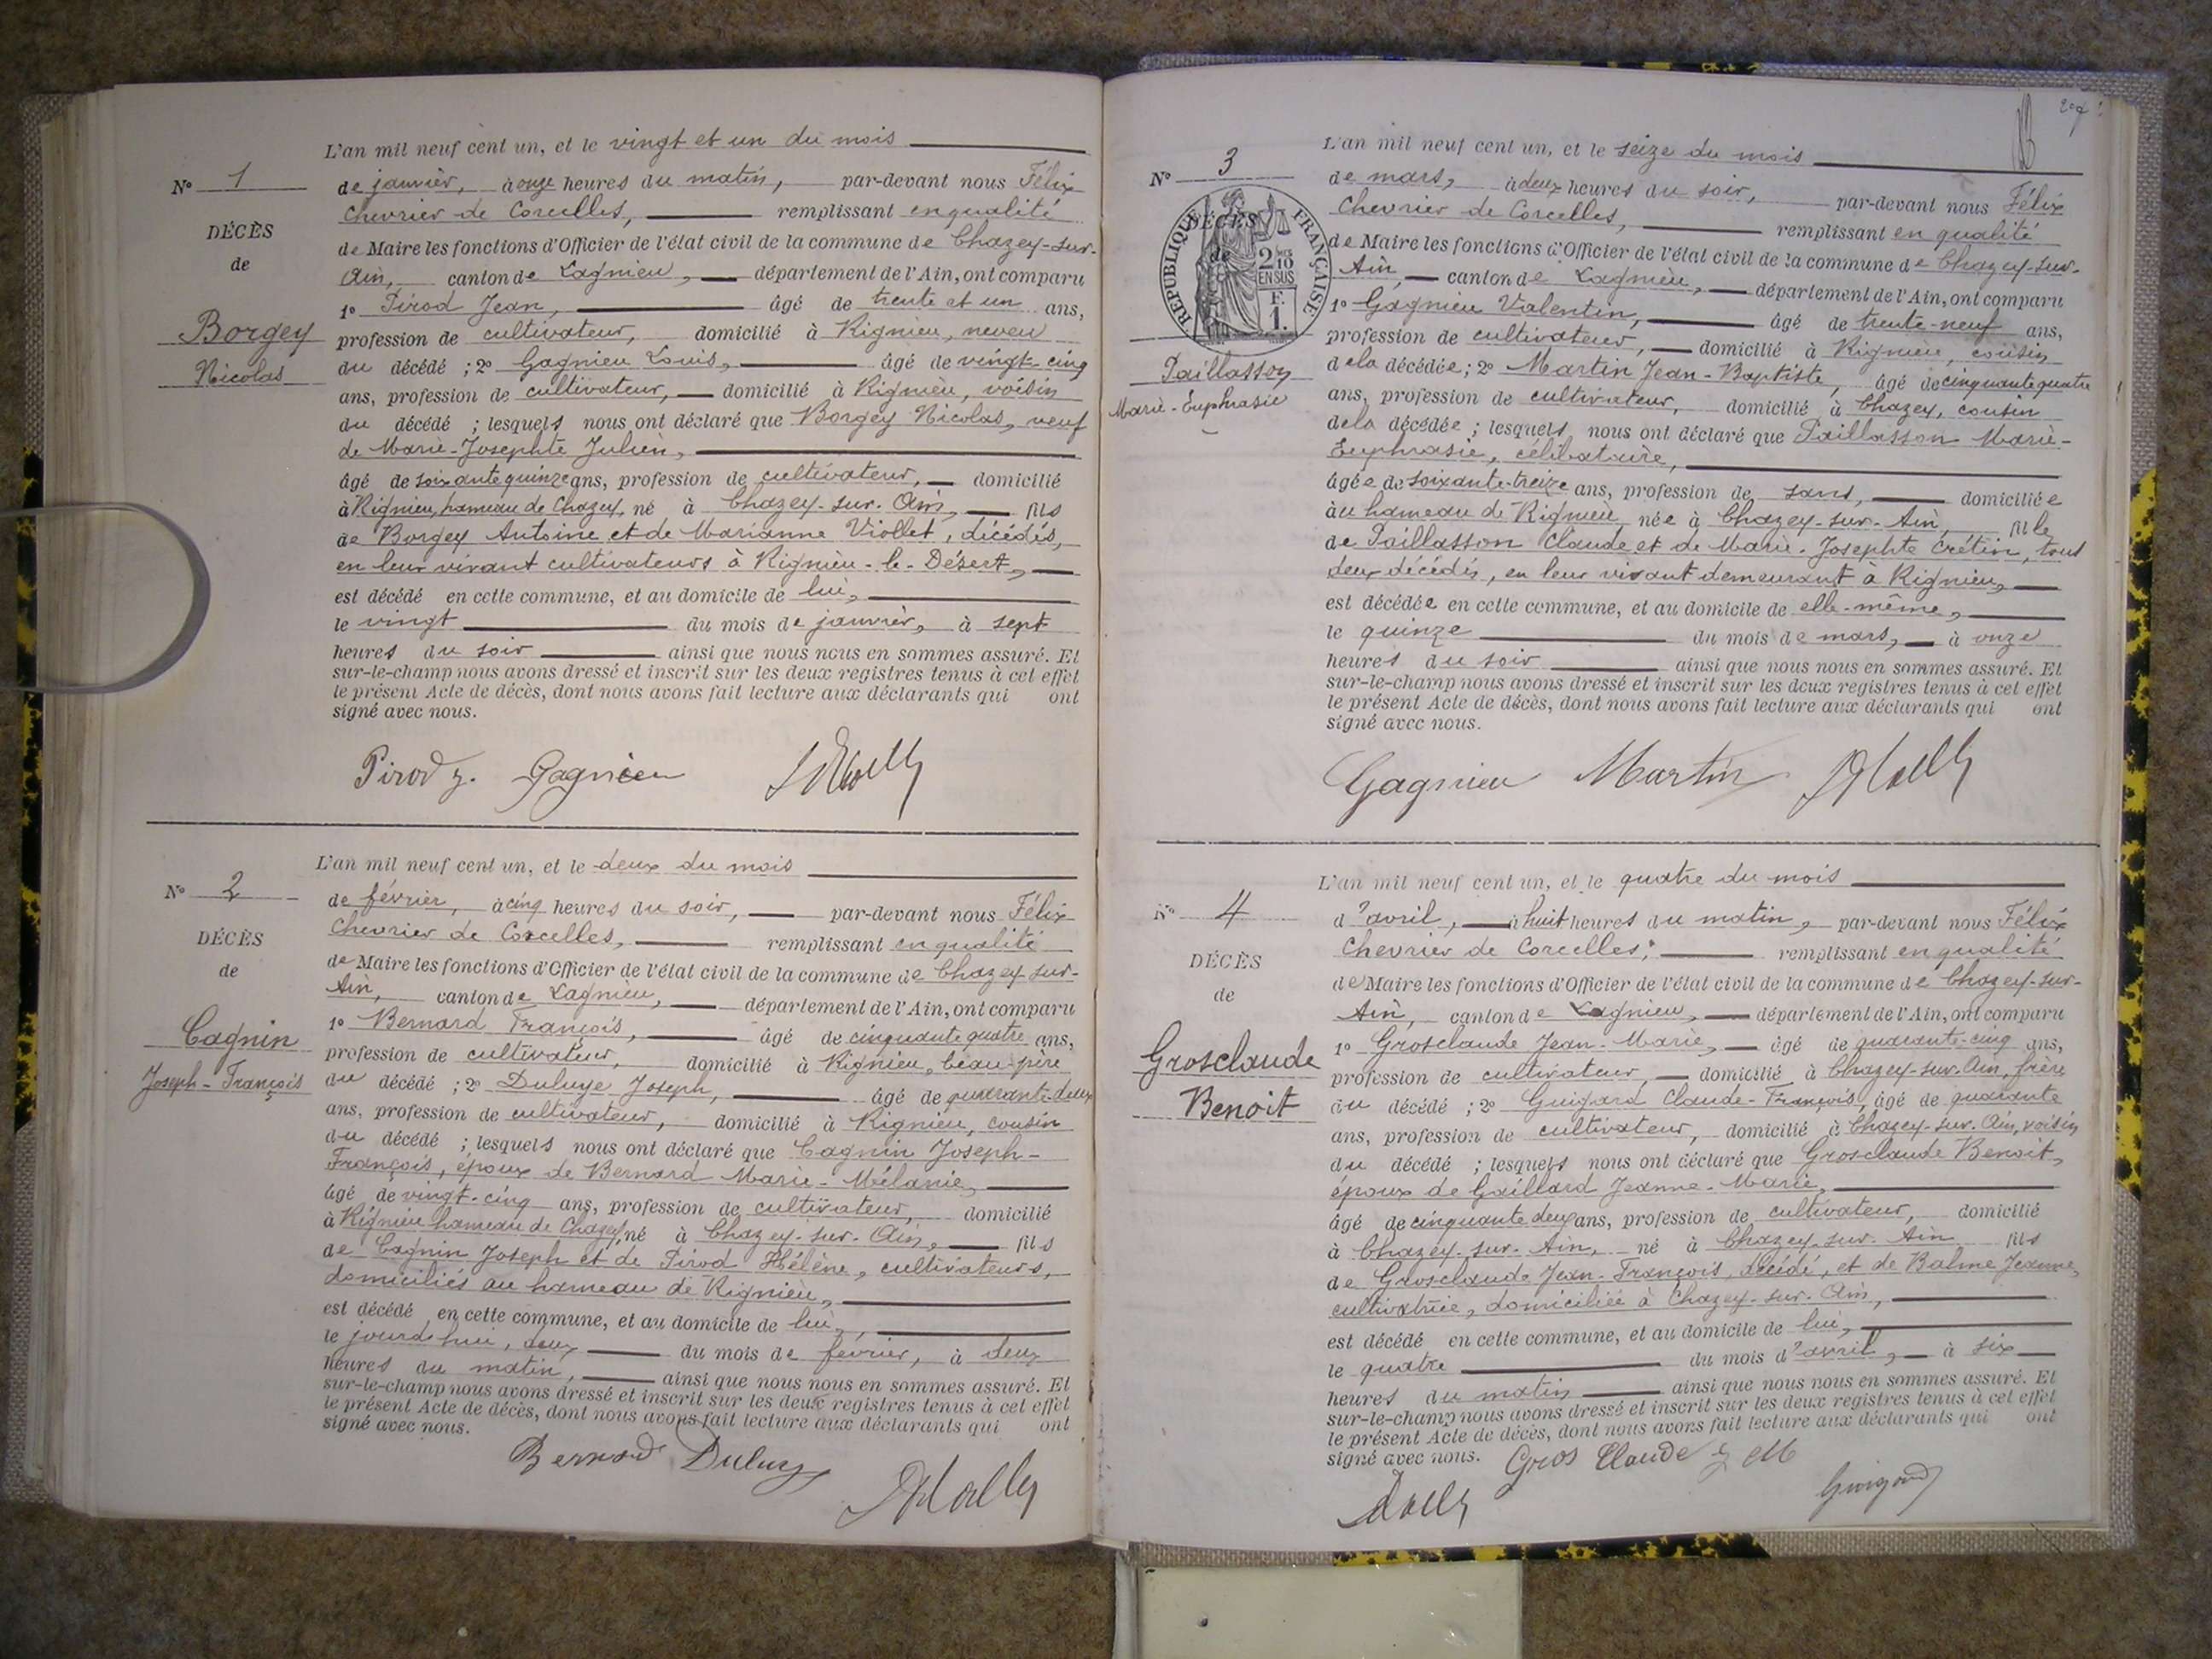 L'an mil neuf cent un, et le vingt et un du mois
N° 1
de janvier, à onze heures du matin, par-devant nous Félix
Chevrier de Corcelles, remplissant en qualité
DÉCÈS
de Maire les fonctions d'Officier de l'état civil de la commune de Chazey-sur-
de
Ain, canton de Lagnieu, département de l'Ain, ont comparu
1° Pirod Jean, âgé de trente et un ans,
Borgey
profession de cultivateur, domicilié à Rignieu, neveu
Nicolas
du décédé ; 2° Gagnieu Louis, âgé de vingt-cinq
ans, profession de cultivateur, domicilié à Rignieu, voisin
du décédé ; lesquels nous ont déclaré que Borgey Nicolas, veuf
de Marie-Josephte Julien,
âgé de soixante quinze ans, profession de cultivateur, domicilié
à Rignieu, hameau de Chazey, né à Chazey-sur-Ain, fils
de Borgey Antoine et de Marianne Viollet, décédés,
en leur vivant cultivateurs à Rignieu-le-Désert,
est décédé en cette commune, et au domicile de lui,
le vingt du mois de janvier, à sept
heures du soir ainsi que nous nous en sommes assuré. Et
sur-le-champ nous avons dressé et inscrit sur les deux registres tenus à cet effet
le présent Acte de décès, dont nous avons fait lecture aux déclarants qui ont
signé avec nous.
Pirod J. Gagnieu
L'an mil neuf cent un, et le deux du mois
N° 2
de février, à cinq heures du soir, par-devant nous Félix
Chevrier de Corcelles, remplissant en qualité
DÉCÈS
de Maire les fonctions d'Officier de l'état civil de la commune de Chazey-sur-
de
Ain, canton de Lagnieu, département de l'Ain, ont comparu
1° Bernard François, âgé de cinquante quatre ans,
Cagnin
profession de cultivateur, domicilié à Rignieu, beau-père
Joseph-François
du décédé ; 2° Duluye Joseph, âgé de quarante-deux
ans, profession de cultivateur, domicilié à Rignieu, cousin
du décédé ; lesquels nous ont déclaré que Cagnin Joseph-
François, époux de Bernard Marie-Mélanie,
âgé de vingt-cinq ans, profession de cultivateur, domicilié
à Rignieu hameau de Chazey, né à Chazey-sur-Ain, fils
de Cagnin Joseph et de Pirod Hélène, cultivateurs,
domiciliés au hameau de Rignieu,
est décédé en cette commune, et au domicile de lui,
le jourdhui, deux du mois de février, à deux
heures du matin, ainsi que nous nous en sommes assuré. Et
sur-le-champ nous avons dressé et inscrit sur les deux registres tenus à cet effet
le présent Acte de décès, dont nous avons fait lecture aux déclarants qui ont
signé avec nous.
Bernard Duluy
L'an mil neuf cent un, et le seize du mois
N° 3
de mars, à deux heures du soir, par-devant nous Félix
Chevrier de Corcelles, remplissant en qualité
DÉCÈS
de
RÉPUBLIQUE FRANÇAISE
2/10 EN SUS
F. 1.
de Maire les fonctions d'Officier de l'état civil de la commune de Chazey-sur-
Ain, canton de Lagnieu, département de l'Ain, ont comparu
1° Gagnieu Valentin, âgé de trente-neuf ans,
profession de cultivateur, domicilié à Rignieu, cousin
Paillasson
de la décédée ; 2° Martin Jean-Baptiste, âgé de cinquante quatre
Marie-Euphrasie
ans, profession de cultivateur, domicilié à Chazey, cousin
de la décédée ; lesquels nous ont déclaré que Paillasson Marie-
Euphrasie, célibataire,
âgée de soixante-treize ans, profession de sans, domiciliée
au hameau de Rignieu, née à Chazey-sur-Ain, fille
de Paillasson Claude et de Marie-Josephte Crétin, tous
deux décédés, en leur vivant demeurant à Rignieu,
est décédée en cette commune, et au domicile de elle-même,
le quinze du mois de mars, à onze
heures du soir ainsi que nous nous en sommes assuré. Et
sur-le-champ nous avons dressé et inscrit sur les deux registres tenus à cet effet
le présent Acte de décès, dont nous avons fait lecture aux déclarants qui ont
signé avec nous.
Gagnieu Martin
L'an mil neuf cent un, et le quatre du mois
N° 4
d'avril, à huit heures du matin, par-devant nous Félix
Chevrier de Corcelles, remplissant en qualité
DÉCÈS
de Maire les fonctions d'Officier de l'état civil de la commune de Chazey-sur-
de
Ain, canton de Lagnieu, département de l'Ain, ont comparu
1° Grosclaude Jean-Marie, âgé de quarante-cinq ans,
Grosclaude
profession de cultivateur, domicilié à Chazey-sur-Ain, frère
Benoit
du décédé ; 2° Guigard Claude-François, âgé de quarante
ans, profession de cultivateur, domicilié à Chazey-sur-Ain, voisin
du décédé ; lesquels nous ont déclaré que Grosclaude Benoit,
époux de Gaillard Jeanne-Marie,
âgé de cinquante deux ans, profession de cultivateur, domicilié
à Chazey-sur-Ain, né à Chazey-sur-Ain fils
de Grosclaude Jean-François, décédé, et de Balme Jeanne,
cultivatrice, domiciliée à Chazey-sur-Ain,
est décédé en cette commune, et au domicile de lui,
le quatre du mois d'avril, à six
heures du matin ainsi que nous nous en sommes assuré. Et
sur-le-champ nous avons dressé et inscrit sur les deux registres tenus à cet effet
le présent Acte de décès, dont nous avons fait lecture aux déclarants qui ont
signé avec nous. Gros Claude J M
Guigard